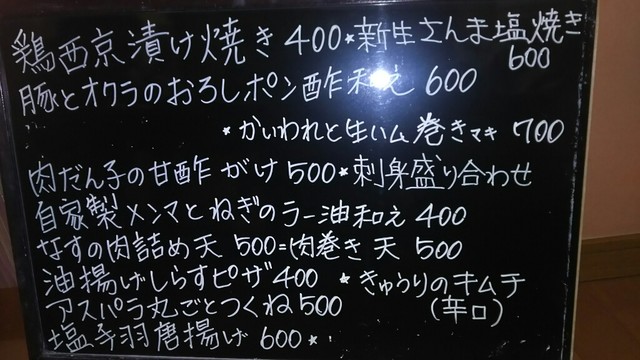 鶏西京漬け焼き 400 * 新生さんま塩焼き
600
豚とオクラのおろしポン酢和え 600
* かいわれと生ハム巻きマキ 700
肉だん子の甘酢がけ 500 * 刺身盛り合わせ
自家製メンマとねぎのラー油和え 400
なすの肉詰め天 500 = 肉巻き天 500
油揚げしらすピザ 400 * きゅうりのキムチ
アスパラ丸ごとつくね 500 (辛口)
塩手羽唐揚げ 600 *